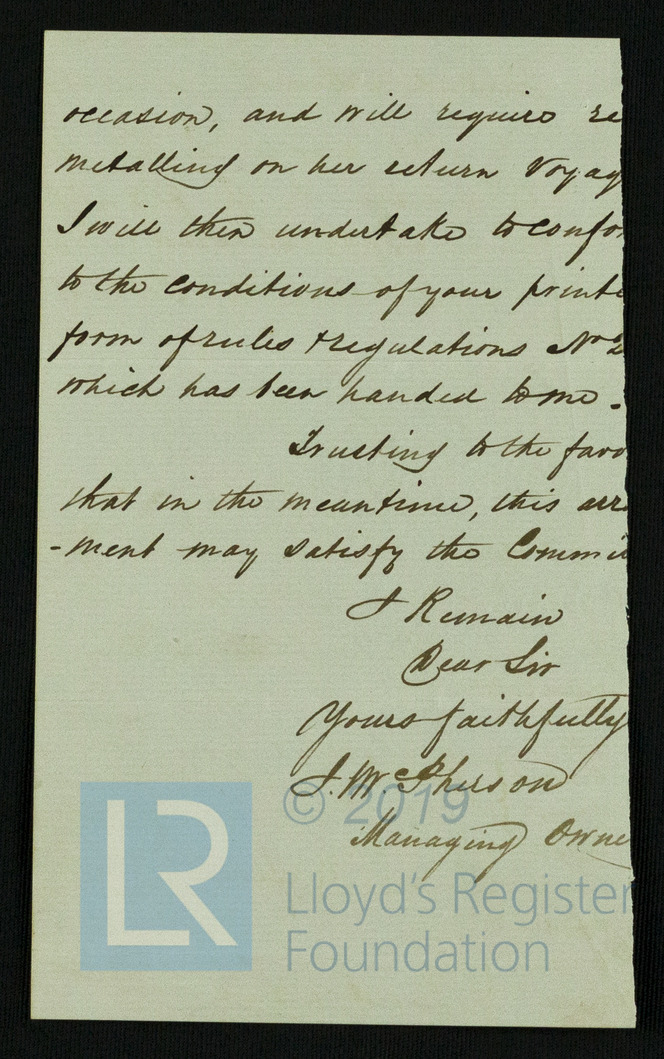 occasion, and will require re
metalling on her return Voyag
I will then undertake to confor
to the conditions of your printe
form of rules & regulations No 2
which has been handed to me.
Trusting to the favo
that in the meantime, this arra
-ment may satisfy the Commit
I Remain
Dear Sir
Yours faithfully
J. McPherson
Managing Owne
LR
© 2019
Lloyd's Register
Foundation